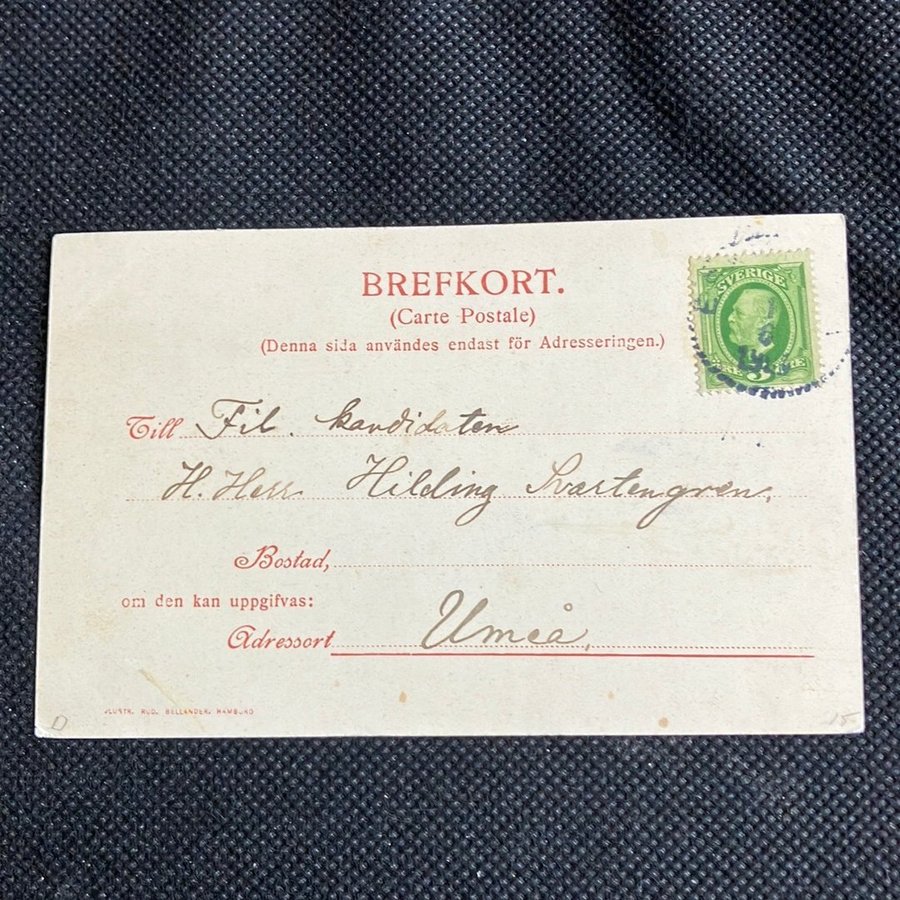 BREFKORT.
(Carte Postale)
(Denna sida användes endast för Adresseringen.)
SVERIGE
Till Fil. kandidaten
H. Herr Hilding Svartengren,
Bostad,
om den kan uppgifvas:
Adressort Umeå,
RUD. BELLANDER, HAMBURG
D
15